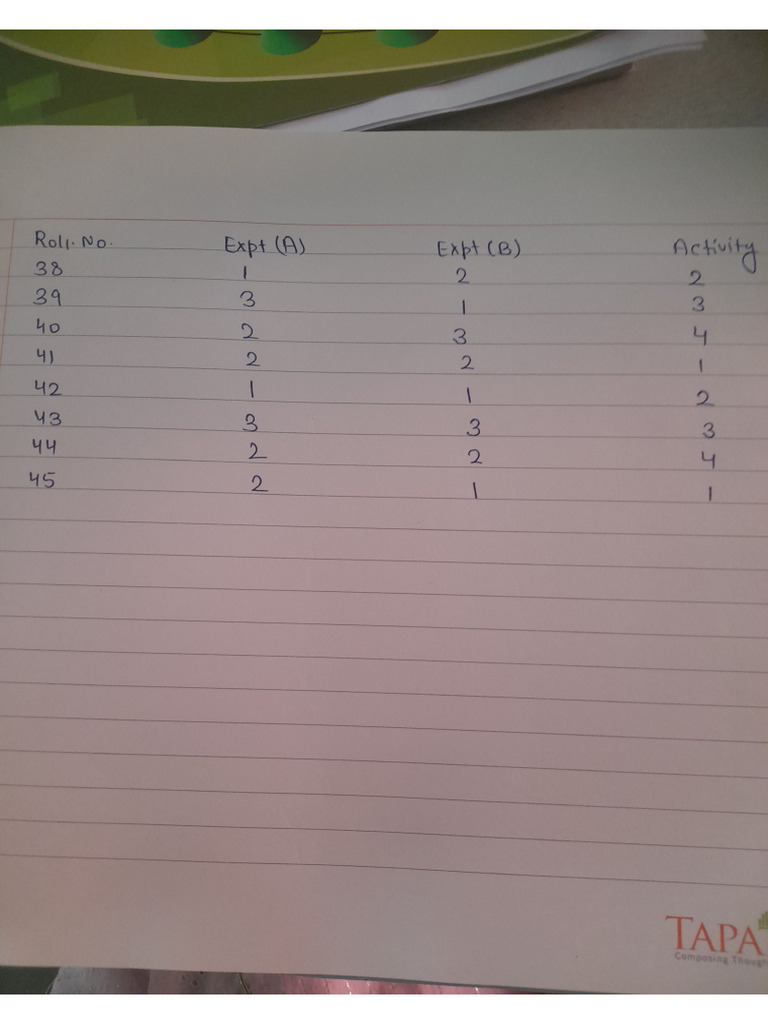 Roll. No. Expt (A) Expt (B) Activity
38 1 2 2
39 3 1 3
40 2 3 4
41 2 2 1
42 1 1 2
43 3 3 3
44 2 2 4
45 2 1 1
TAPA
Composing Though